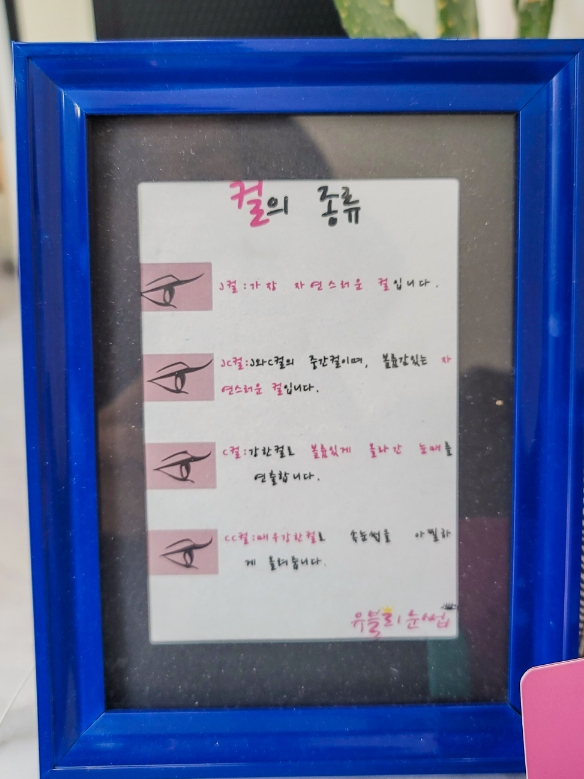 컬의 종류
J컬:가장 자연스러운 컬입니다.
JC컬:J와C컬의 중간컬이며, 볼륨감있는 자
연스러운 컬입니다.
C컬:강한컬로 볼륨있게 올라간 눈매를
연출합니다.
CC컬:매우강한컬로 속눈썹을 아찔하
게 올려줍니다.